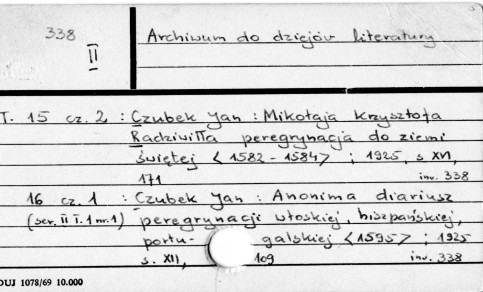 338
II
Archiwum do dziejów literatury
T. 15 cz. 2 : Czubek Jan : Mikołaja Krzysztofa
Radziwiłła peregrynacja do ziemi
świętej <1582 - 1584> ; 1925, s. XVI,
171 inv. 338
16 cz. 1 : Czubek Jan : Anonima diariusz
(ser. II T. 1 nr. 1) peregrynacji włoskiej, hiszpańskiej,
portu- galskiej <1595> ; 1925
s. XII, 109 inv. 338
DUJ 1078/69 10.000